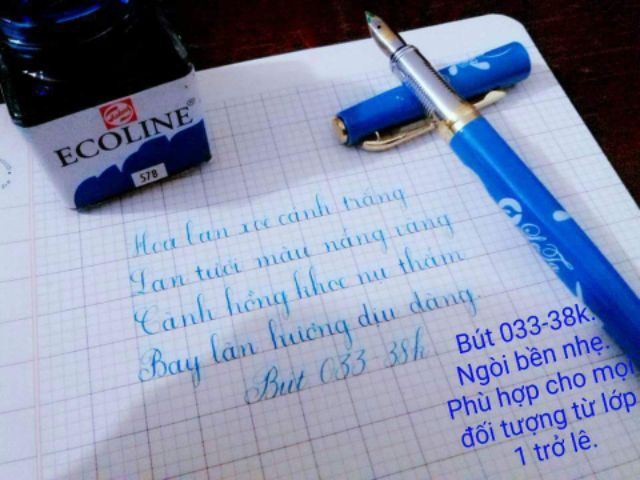 ECOLINE
578
Hoa lan xoe cánh trắng
Lan tươi màu nắng vàng
Cành hồng khoe nụ thắm
Bay làn hương dịu dàng.
Bút 033 38k
Bút 033-38k.
Ngòi bền nhẹ.
Phù hợp cho mọi
đối tượng từ lớp
1 trở lê.